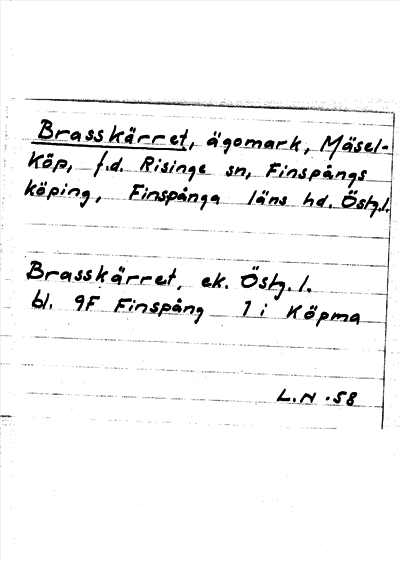 Brasskärret, ägomark, Mäsel-
köp, f.d. Risinge sn, Finspångs
köping, Finspånga läns hd. Östg.l.
Brasskärret, ek. Östg.l.
bl. 9F Finspång 1 i Köpma
L.N -58